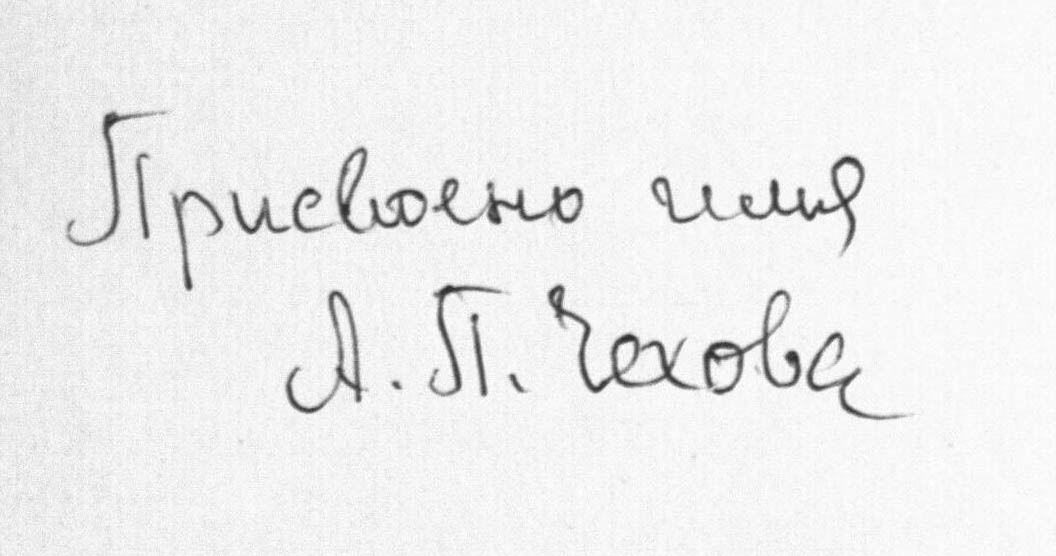 Присвоено имя
А. П. Чехова